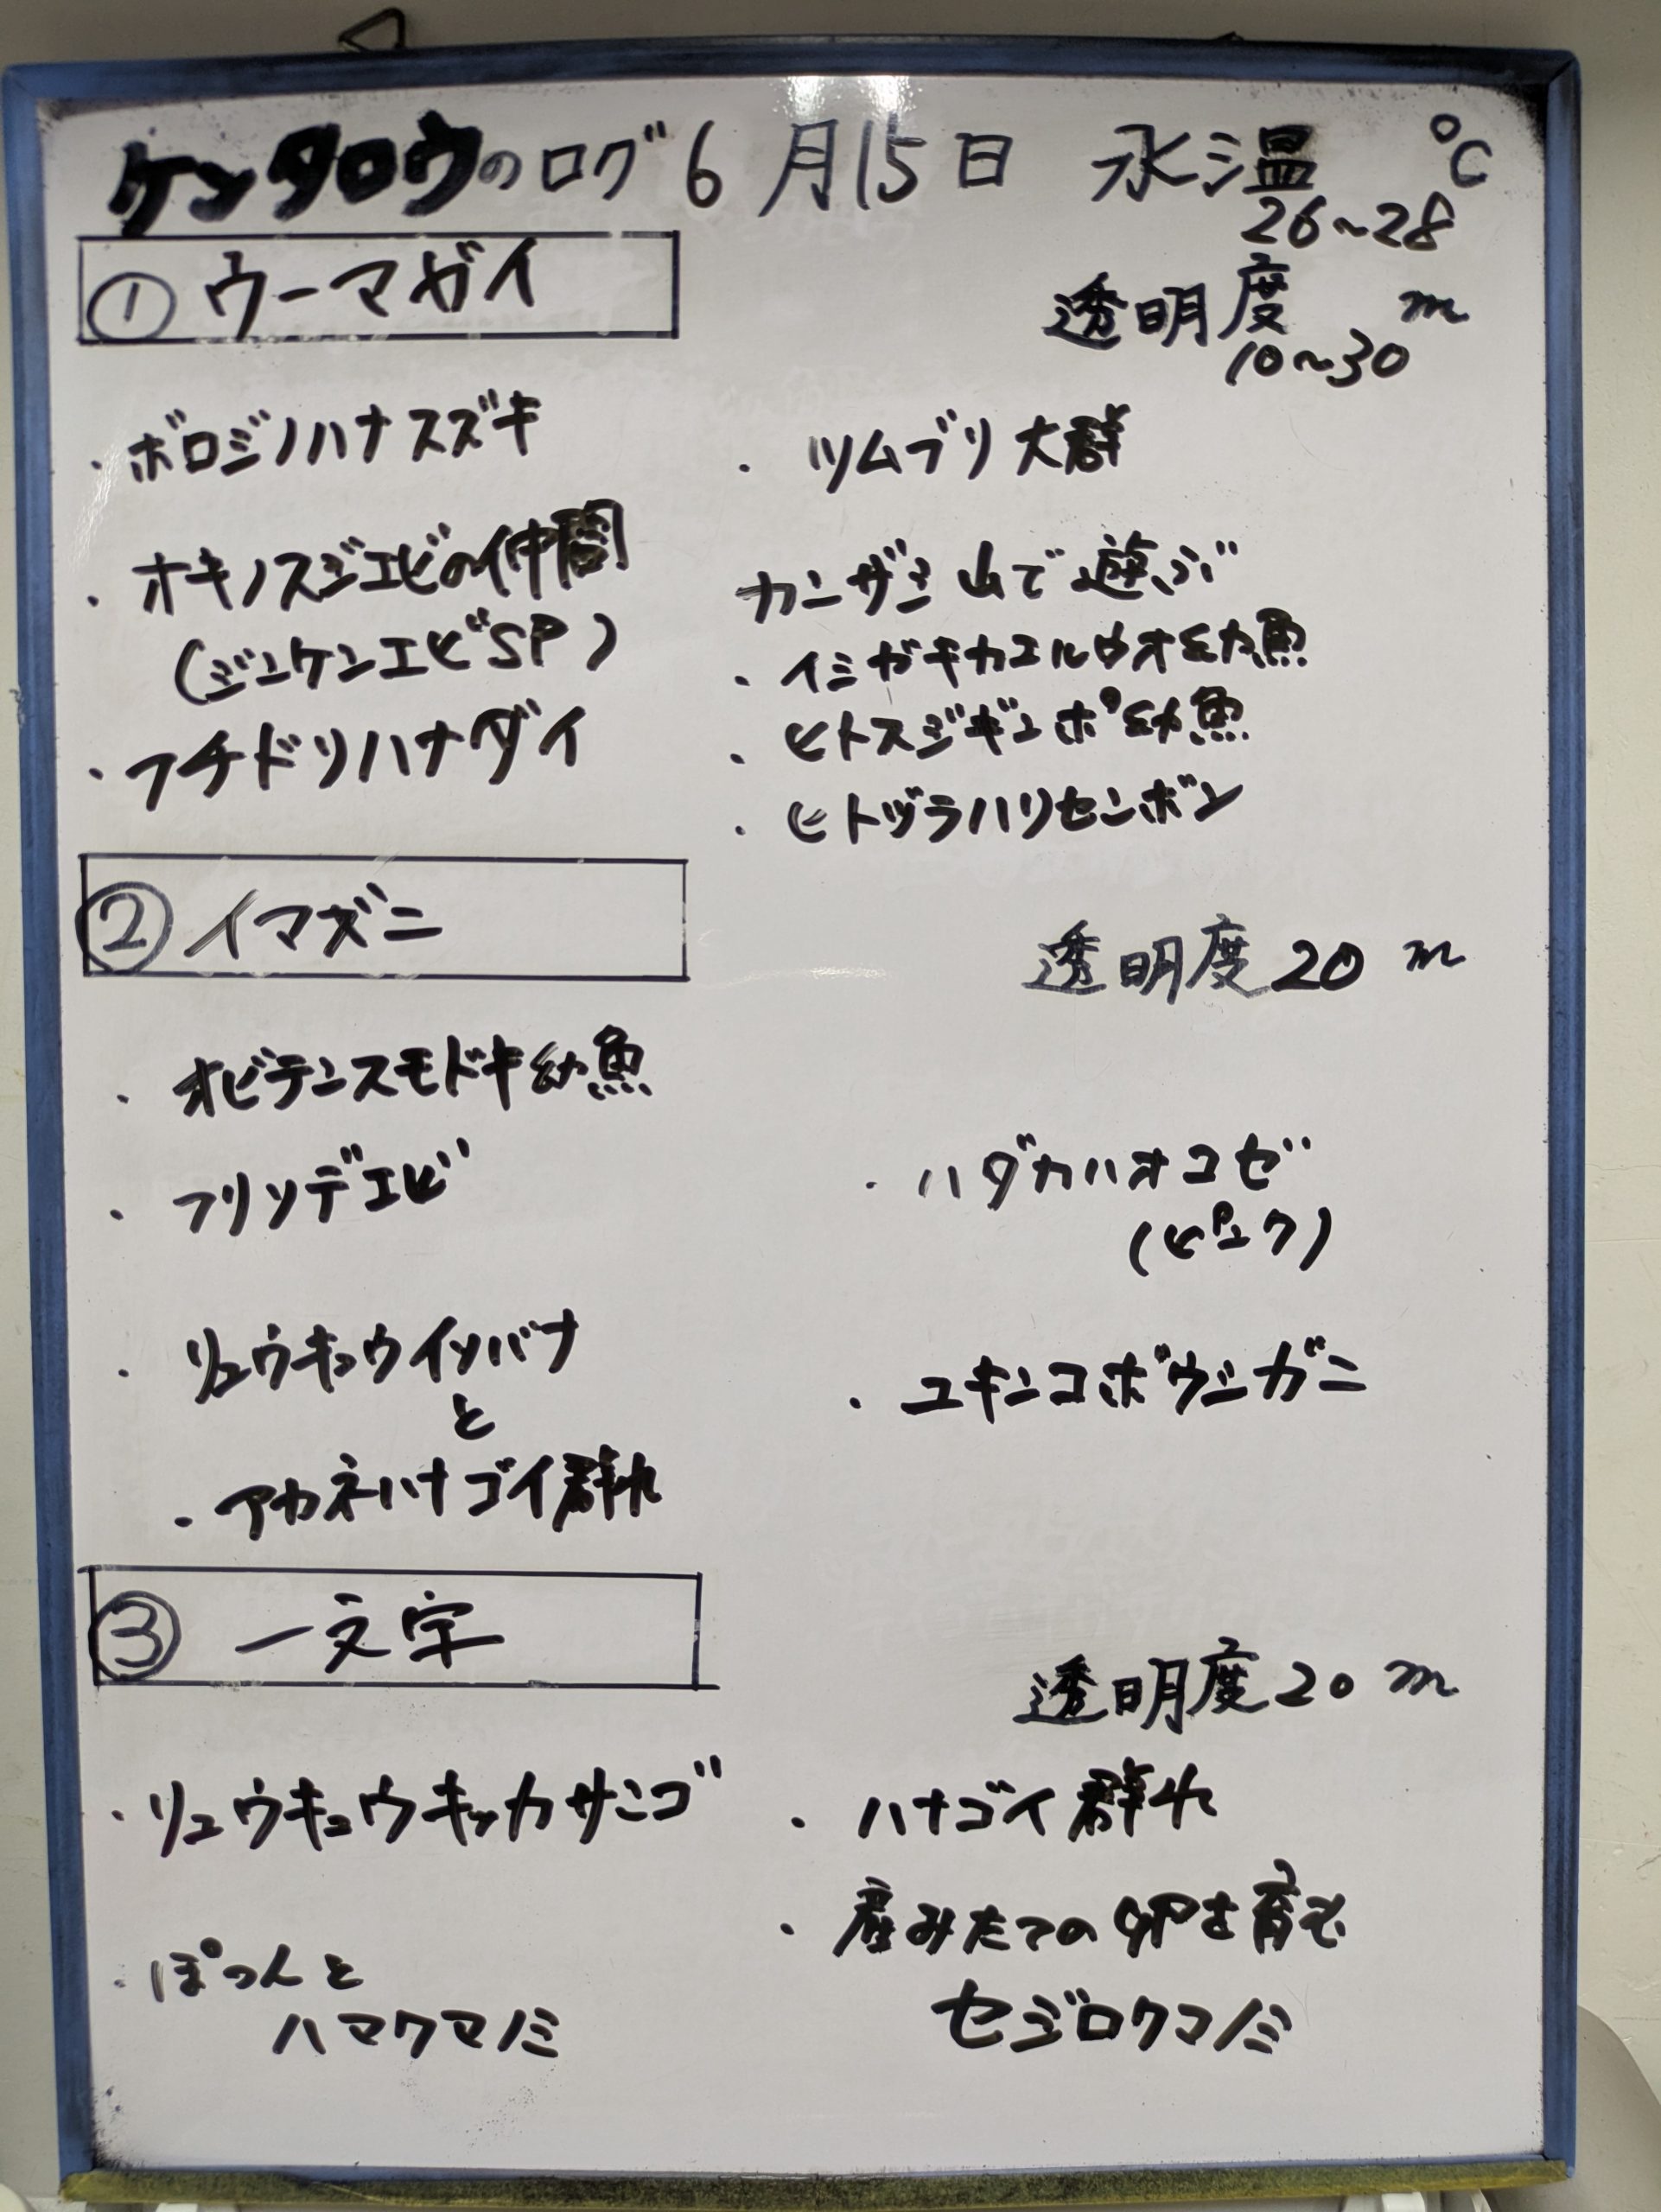 ケンタロウのログ 6月15日 水温 ℃
26~28
① ウーマガイ
透明度 m
10~30
・ボロジノハナスズキ
・オキノスジエビの仲間
(ジンケンエビSP)
・フチドリハナダイ
・ツムブリ大群
カンザシ山で遊ぶ
・イシガキカエルウオ幼魚
・ヒトスジギンポ幼魚
・ヒトヅラハリセンボン
② イマズニ
透明度20m
・オビテンスモドキ幼魚
・フリソデエビ
・リュウキュウイソバナ
と
・アカネハナゴイ群れ
・ハダカハオコゼ
(ピンク)
・ユキンコボウシガニ
③ 一文字
透明度20m
・リュウキュウキッカサンゴ
・ぽつんと
ハマクマノミ
・ハナゴイ群れ
・産みたての卵を育む
セジロクマノミ